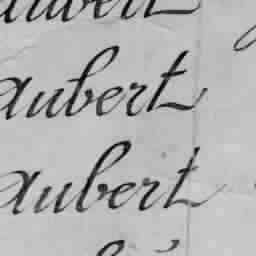 aubert
aubert
aubert